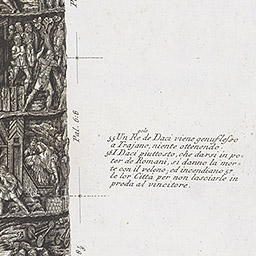 Pal. 6:6
55 Un Re de Daci viene genuflesso
a Trajano, niente ottenendo
56 I Daci piuttosto, che darsi in po-
ter de Romani, si danno la mor-
te con il veleno, ed incendiano 57
le lor Città per non lasciarle in
preda al vincitore.